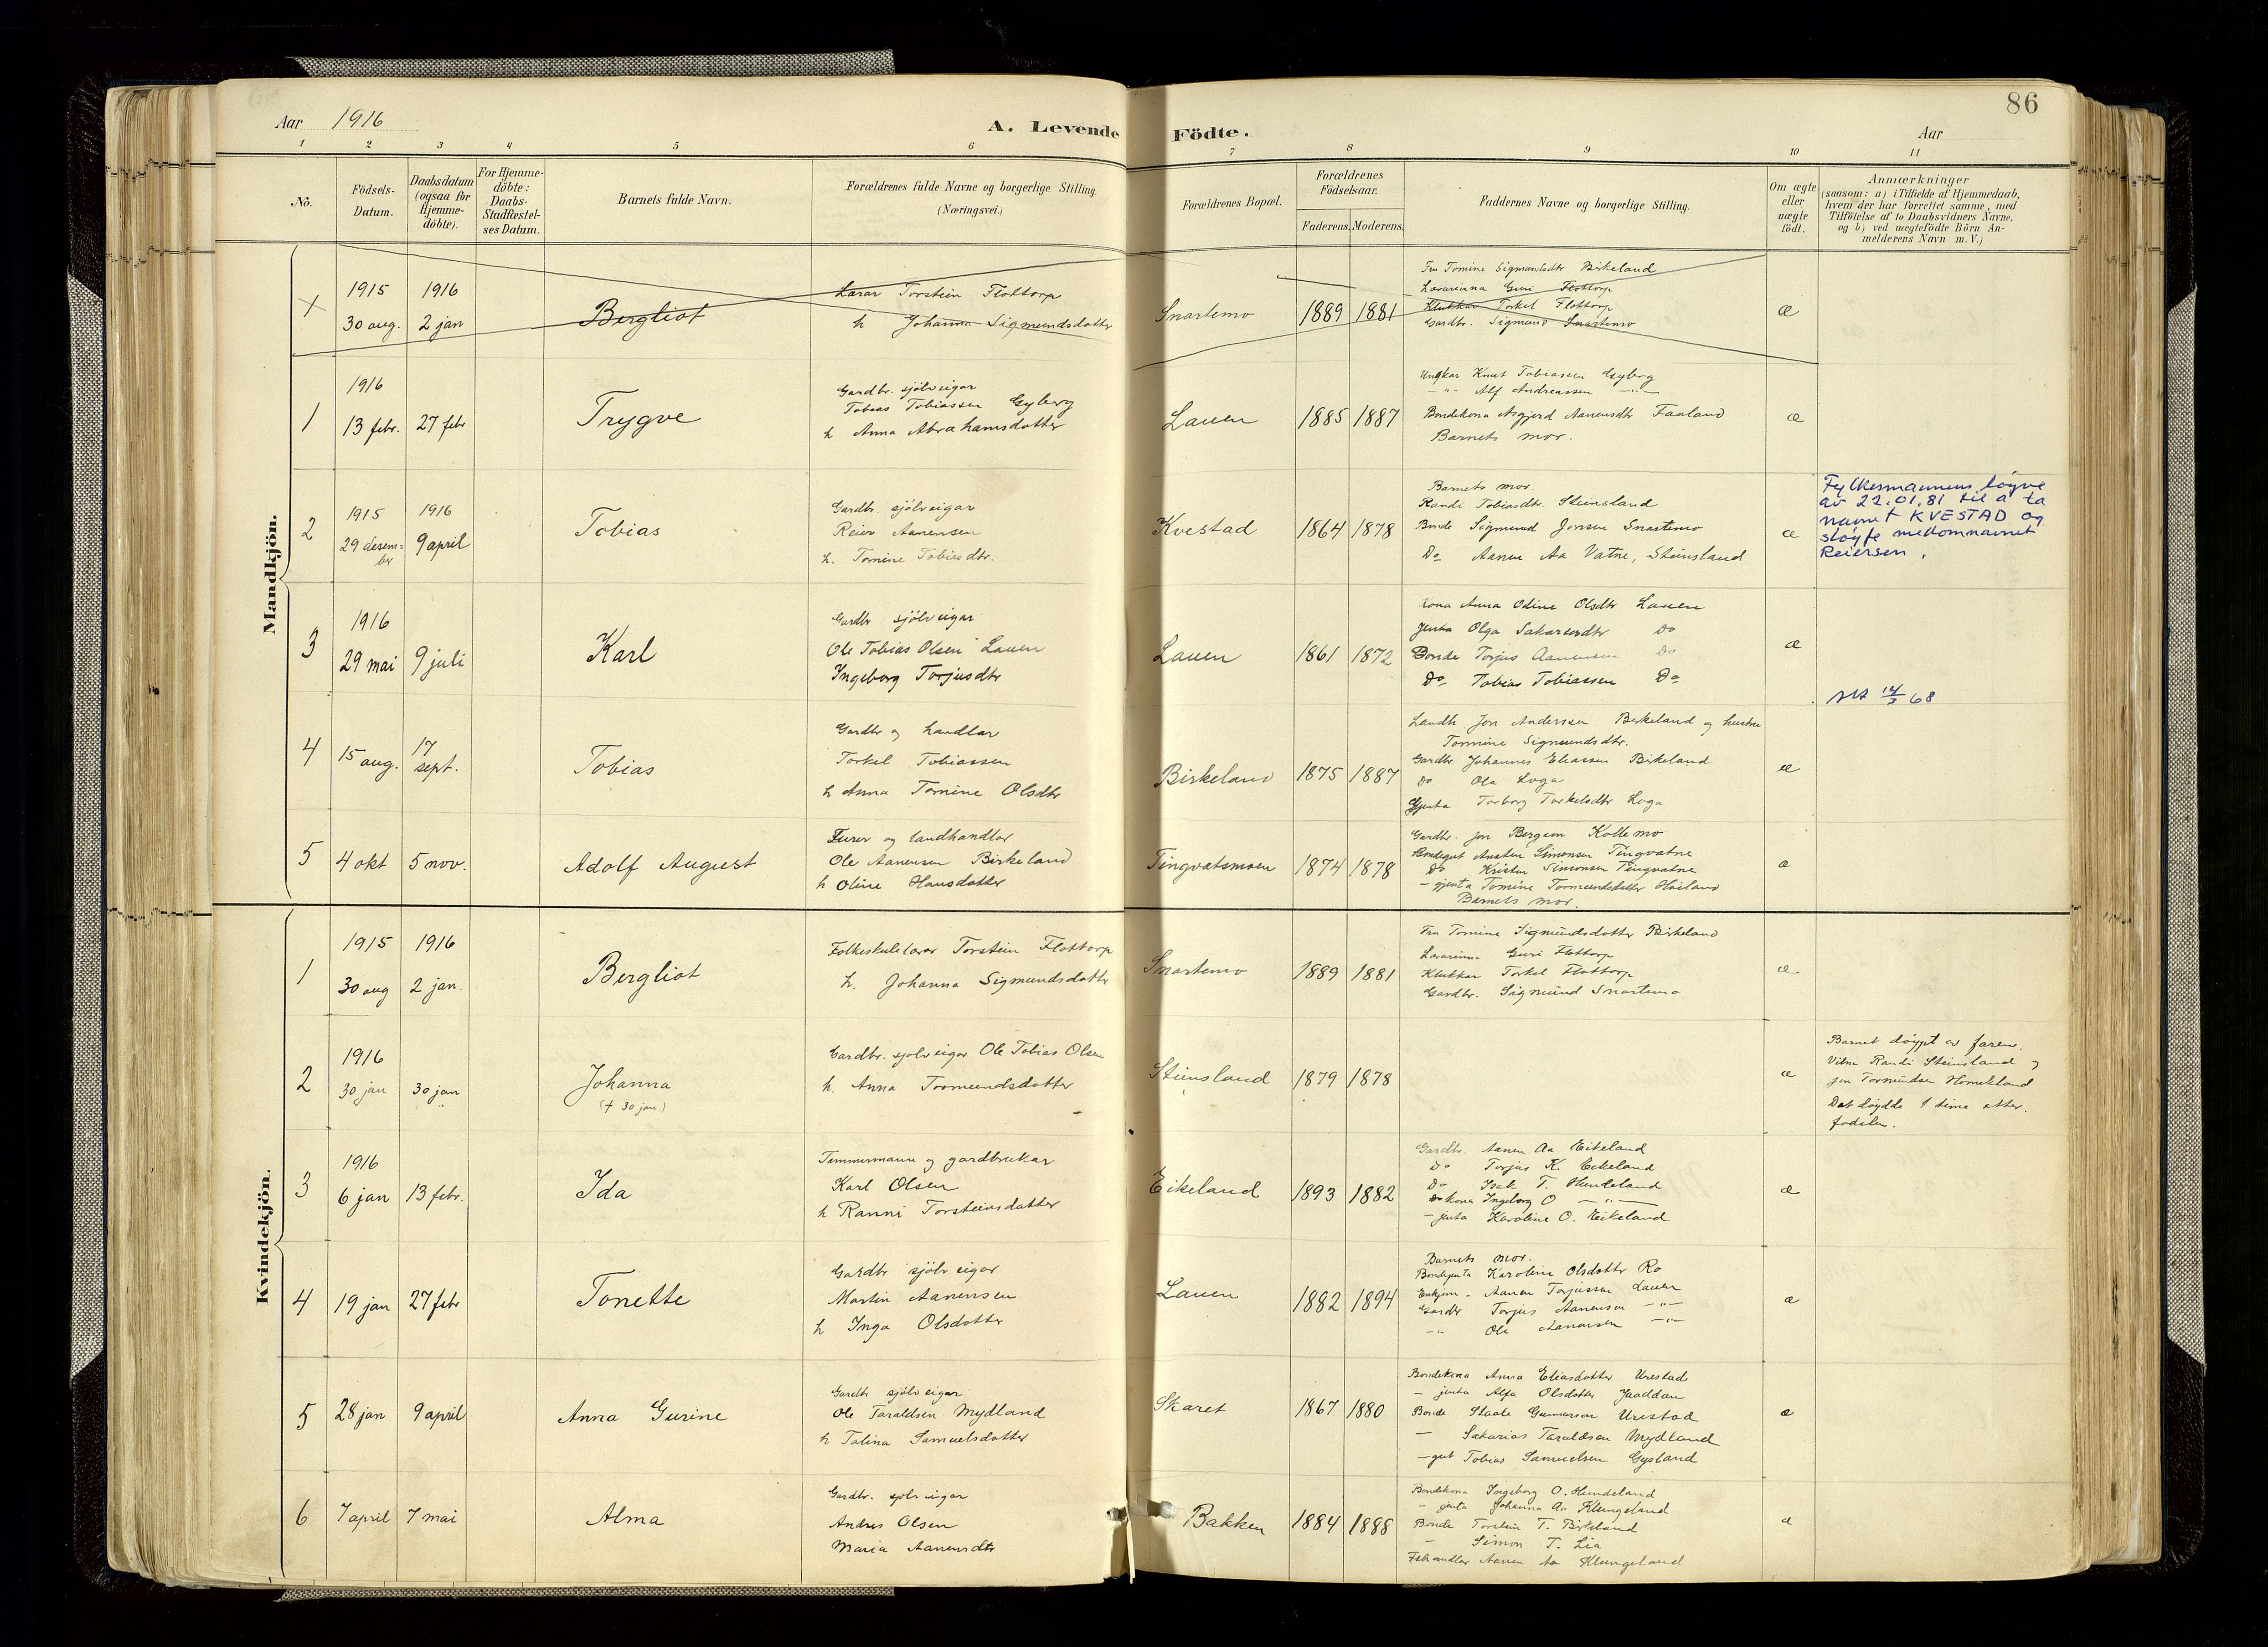 86
Aar 1916
A. Levende Födte.
Aar
1 2 3 4 5 6 7 8 9 10 11
No.
Födsels-Datum.
Daabsdatum (ogsaa for Hjemme-döbte).
For Hjemme-döbte: Daabs-Stadfæstel-ses Datum.
Barnets fulde Navn.
Forældrenes fulde Navne og borgerlige Stilling.
(Næringsvei.)
Forældrenes Bopæl.
Forældrenes Födselsaar.
Faderens. Moderens.
Faddernes Navne og borgerlige Stilling.
Om ægte eller uægte födt.
Anmærkninger
(saasom: a) i Tilfælde af Hjemmedaab,
hvem der har forrettet samme, med
Tilföielse af to Daabsvidners Navne.
og b) ved uægtefödte Börn An-
melderens Navn m. V.)
Mandkjön.
1915 30 aug.
1916 2 jan
Bergliot
Lærar Torstein Flottorp
h Johanna Sigmundsdotter
Snartemo
1889 1881
Fru Tomine Sigmundsdtr Birkeland
Lærarinna Guri Flottorp
Klukkar Torkel Flottorp
Gardbr. Sigmund Snartemo
æ
1
1916
13 febr.
27 febr
Trygve
Gardbr. sjölveigar
Tobias Tobiassen Gyberg
h Anna Abrahamsdotter
Lauen
1885 1887
Ungkar Knut Tobiassen Gyberg
-"- Alf Andreassen -"-
Bondekona Asgjerd Aanensdtr Faaland
Barnets mor.
æ
2
1915
29 desem-
ber
1916
9 april
Tobias
Gardbr sjölveigar
Reier Aanensen
h. Tomine Tobiasdtr.
Kvestad
1864 1878
Barnets mor.
Randi Tobiasdt. Steinsland
Bonde Sigmund Jonsen Snartemo
Do Aanen Aa Vatne, Steinsland
æ
Fylkesmannens løyve
av 22.01.81 til å ta
navnet KVESTAD og
sløyfe mellomnavnet
Reiersen.
3
1916
29 mai
9 juli
Karl
Gardbr sjölveigar
Ole Tobias Olsen Lauen
Ingeborg Torjusdtr
Lauen
1861 1872
Kona Anna Odine Olsdtr Lauen
Jenta Olga Sakariasdtr Do
Bonde Torjus Aanensen Do
Do Tobias Tobiassen Do
æ
4
15 aug.
17 sept.
Tobias
Gardbr og handlar
Torkel Tobiassen
h Anna Tomine Olsdtr
Birkeland
1875 1887
Landh Jon Anderssen Birkeland og hustru
Tomine Sigmundsdtr.
Gardbr Johannes Eliassen Birkeland
Do Ola Loga
Gjenta Torborg Torkelsdtr Loga
æ
68
5
4 okt
5 nov.
Adolf August
Furer og landhandlar
Ole Aanensen Birkeland
h Oline Hansdotter
Tingvatsmoen
1874 1878
Gardbr. Jon Bergson Kollemo
Bondegut Austen Simonsen Tingvatne
Do Kristen Simonsen Tingvatne
- gjenta Tomine Tormundsdotter Høiland
Barnets mor.
æ
Kvindekjön.
1
1915
30 aug
1916
2 jan.
Bergliot
Folkeskulelærar Torstein Flottorp
h. Johanna Sigmundsdotter
Snartemo
1889 1881
Fru Tomine Sigmundsdotter Birkeland
Lærarinna Guri Flottorp
Klukkar Torkel Flottorp
Gardbr. Sigmund Snartemo
æ
2
1916
30 jan
30 jan
Johanna
(† 30 jan)
Gardbr. sjolveigar Ole Tobias Olsen
h. Anna Tormundsdotter
Steinsland
1879 1878
æ
Barnet døypt av faren.
Vitne Randi Steinsland og
Jon Tormundsen Homekland
Det døydde 1 time etter
fødselen.
3
1916
6 jan
13 febr.
Ida
Timmermann og gardbrukar
Karl Olsen
h Ranni Torsteinsdatter
Eikeland
1893 1882
Gardbr. Aanen Aa Eikeland
Do Torjus K. Eikeland
Do Isak T. Hundeland
Do kona Ingeborg O -"-
- jenta Karoline O. Eikeland
æ
4
19 jan
27 febr
Tonette
Gardbr sjölveigar
Martin Aanensen
h Inga Olsdotter
Lauen
1882 1894
Barnets mor.
Bondejenta Karoline Olsdotter Ro
Enkjem. Aanen Torjussen Lauen
Gardbr Torjus Aanensen -"-
-"- Ole Aanensen -"-
æ
5
28 jan
9 april
Anna Gurine
Gardbr sjölveigar
Ole Taraldsen Mydland
h Talina Samuelsdotter
Skaret
1867 1880
Bondekona Anna Eliasdotter Urestad
- jenta Alfa Olsdotter Jaaddan
Bonde Staale Gunnarson Urestad
- Sakarias Taraldsen Mydland
- gut Tobias Samuelsen Gysland
æ
6
7 april
7 mai
Alma
Gardbr. sjolveigar
Andres Olsen
Maria Aanensdtr
Bakken
1884 1888
Bondekona Ingeborg O. Hundeland
- jenta Johanna Aa Klungeland
Bonde Torstein T. Birkeland
- Simon T. Lia
Fehandlar Aanen Aa Klungeland
æ